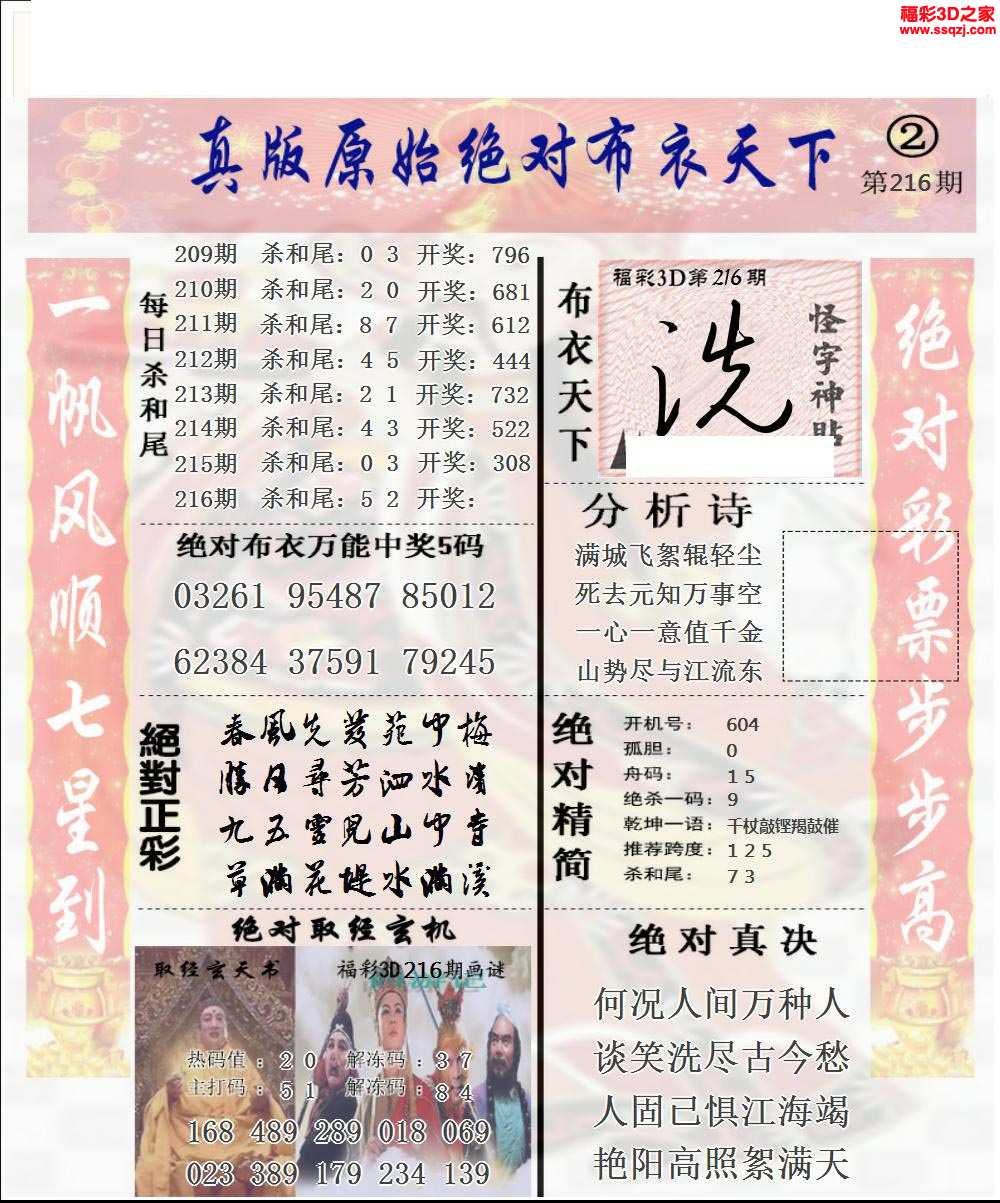 福彩3D之家
www.ssqzj.com
真版原始绝对布衣天下
②
第216期
一帆风顺七星到
每日杀和尾
209期 杀和尾：0 3 开奖：796
210期 杀和尾：2 0 开奖：681
211期 杀和尾：8 7 开奖：612
212期 杀和尾：4 5 开奖：444
213期 杀和尾：2 1 开奖：732
214期 杀和尾：4 3 开奖：522
215期 杀和尾：0 3 开奖：308
216期 杀和尾：5 2 开奖：
绝对布衣万能中奖5码
03261 95487 85012
62384 37591 79245
絕對正彩
春風先發苑中梅
勝日尋芳泗水濱
九五雲見山中音
草满花堤水满溪
绝对取经玄机
取经玄天书
福彩3D216期画谜
热码值：2 0 解冻码：3 7
主打码：5 1 解冻码：8 4
168 489 289 018 069
023 389 179 234 139
布衣天下
福彩3D第216期
洗
怪字神贴
分析诗
满城飞絮辊轻尘
死去元知万事空
一心一意值千金
山势尽与江流东
绝对精简
开机号： 604
孤胆： 0
舟码： 1 5
绝杀一码： 9
乾坤一语： 千杖敲铿羯鼓催
推荐跨度： 1 2 5
杀和尾： 7 3
绝对真决
何况人间万种人
谈笑洗尽古今愁
人固已惧江海竭
艳阳高照絮满天
绝对彩票步步高